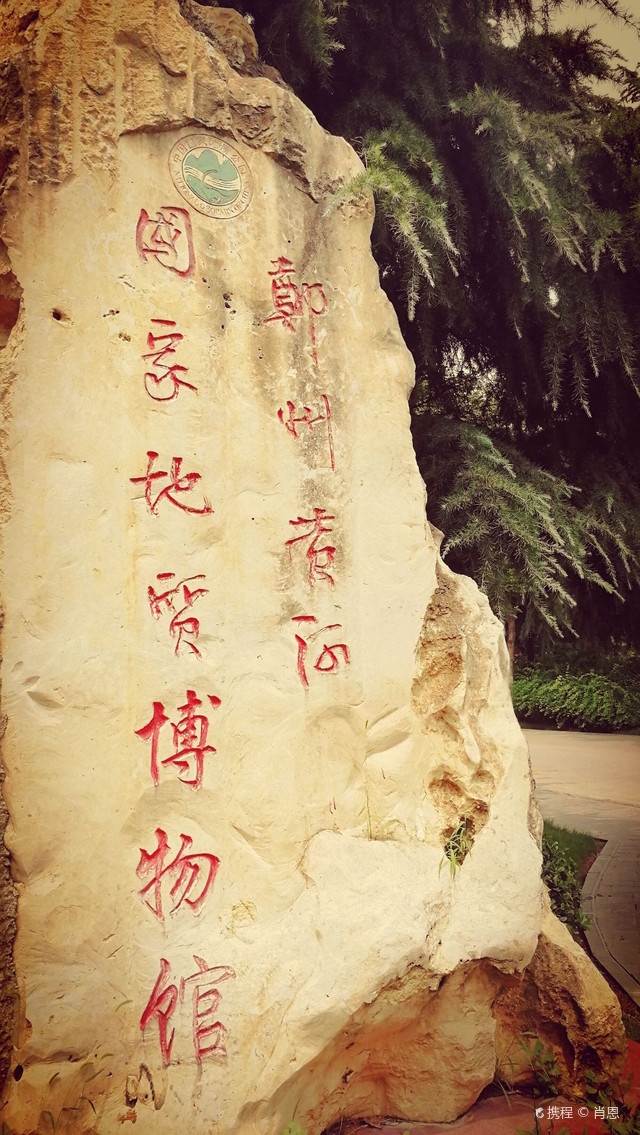 鄭州黄河
國家地質博物館
携程 © 肖恩